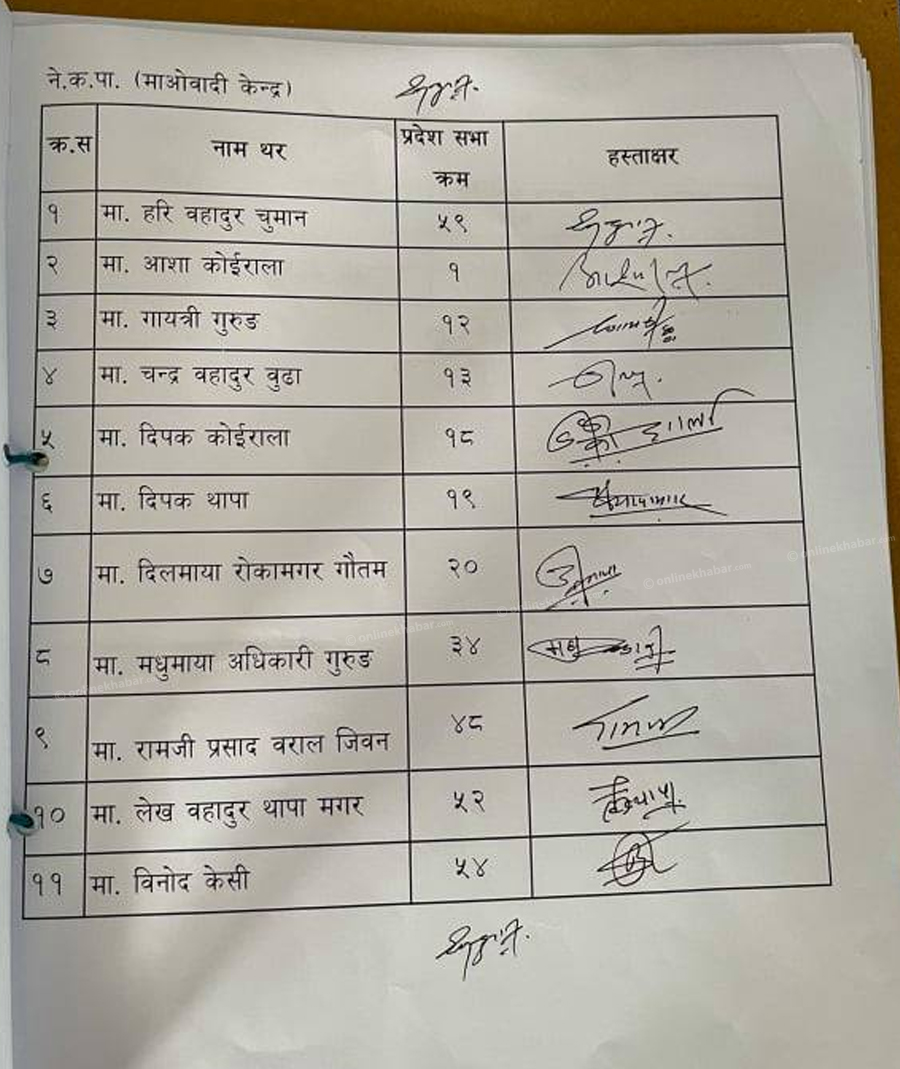 ने.क.पा. (माओवादी केन्द्र)
क्र.स नाम थर प्रदेश सभा क्रम हस्ताक्षर
१ मा. हरि वहादुर चुमान ५९
२ मा. आशा कोईराला १
३ मा. गायत्री गुरुङ १२
४ मा. चन्द्र वहादुर वुढा १३
५ मा. दिपक कोईराला १८
६ मा. दिपक थापा १९
७ मा. दिलमाया रोकामगर गौतम २०
८ मा. मधुमाया अधिकारी गुरुङ ३४
९ मा. रामजी प्रसाद वराल जिवन ४८
१० मा. लेख वहादुर थापा मगर ५२
११ मा. विनोद केसी ५४
© onlinekhabar.com
© onlinekhabar.com
© onlinekhabar.com
© onlinekhabar.com